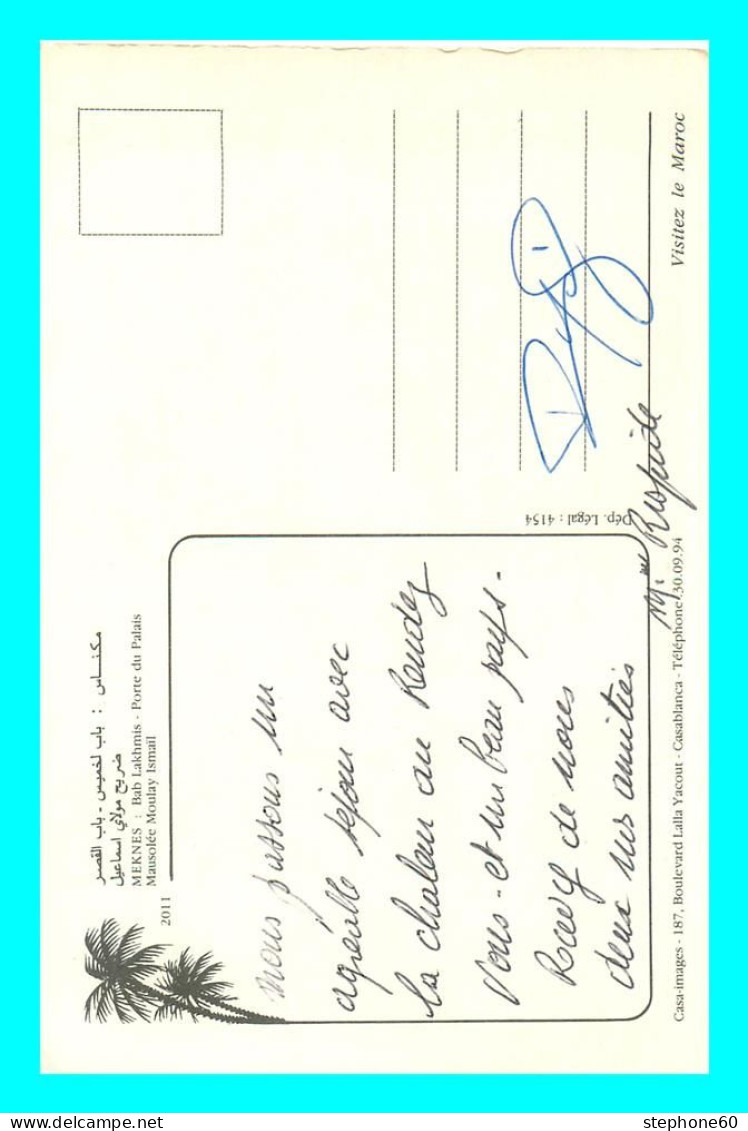 مكناس : باب لخميس - باب القصر
ضريح مولاي اسماعيل
MEKNES : Bab Lakhmis - Porte du Palais
Mausolée Moulay Ismaïl
2011
nous passons un
agréable séjour avec
la chaleur au Rendez
Vous - et un beau pays -
de nous
deux nos amitiés
Dép. Légal : 4154
Casa-images - 187, Boulevard Lalla Yacout - Casablanca - Téléphone : 30.09.94
Visitez le Maroc
stephone60